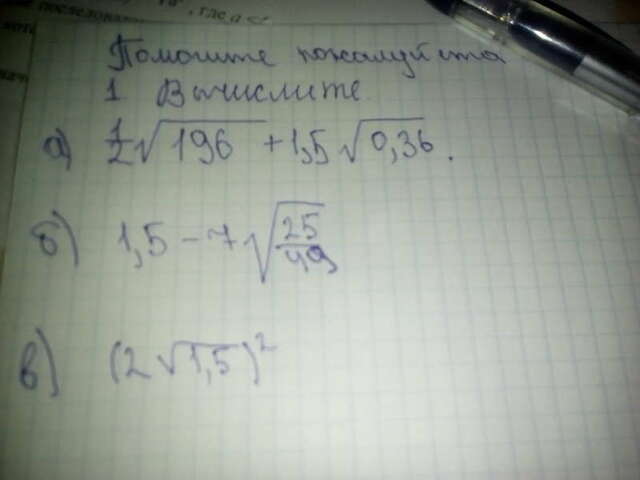 после , где a <
Помогите пожалуйста
1 Вычислите
а) 1/2 √196 + 1,5 √0,36 .
б) 1,5 - 7 √25/49
в) (2√1,5)²